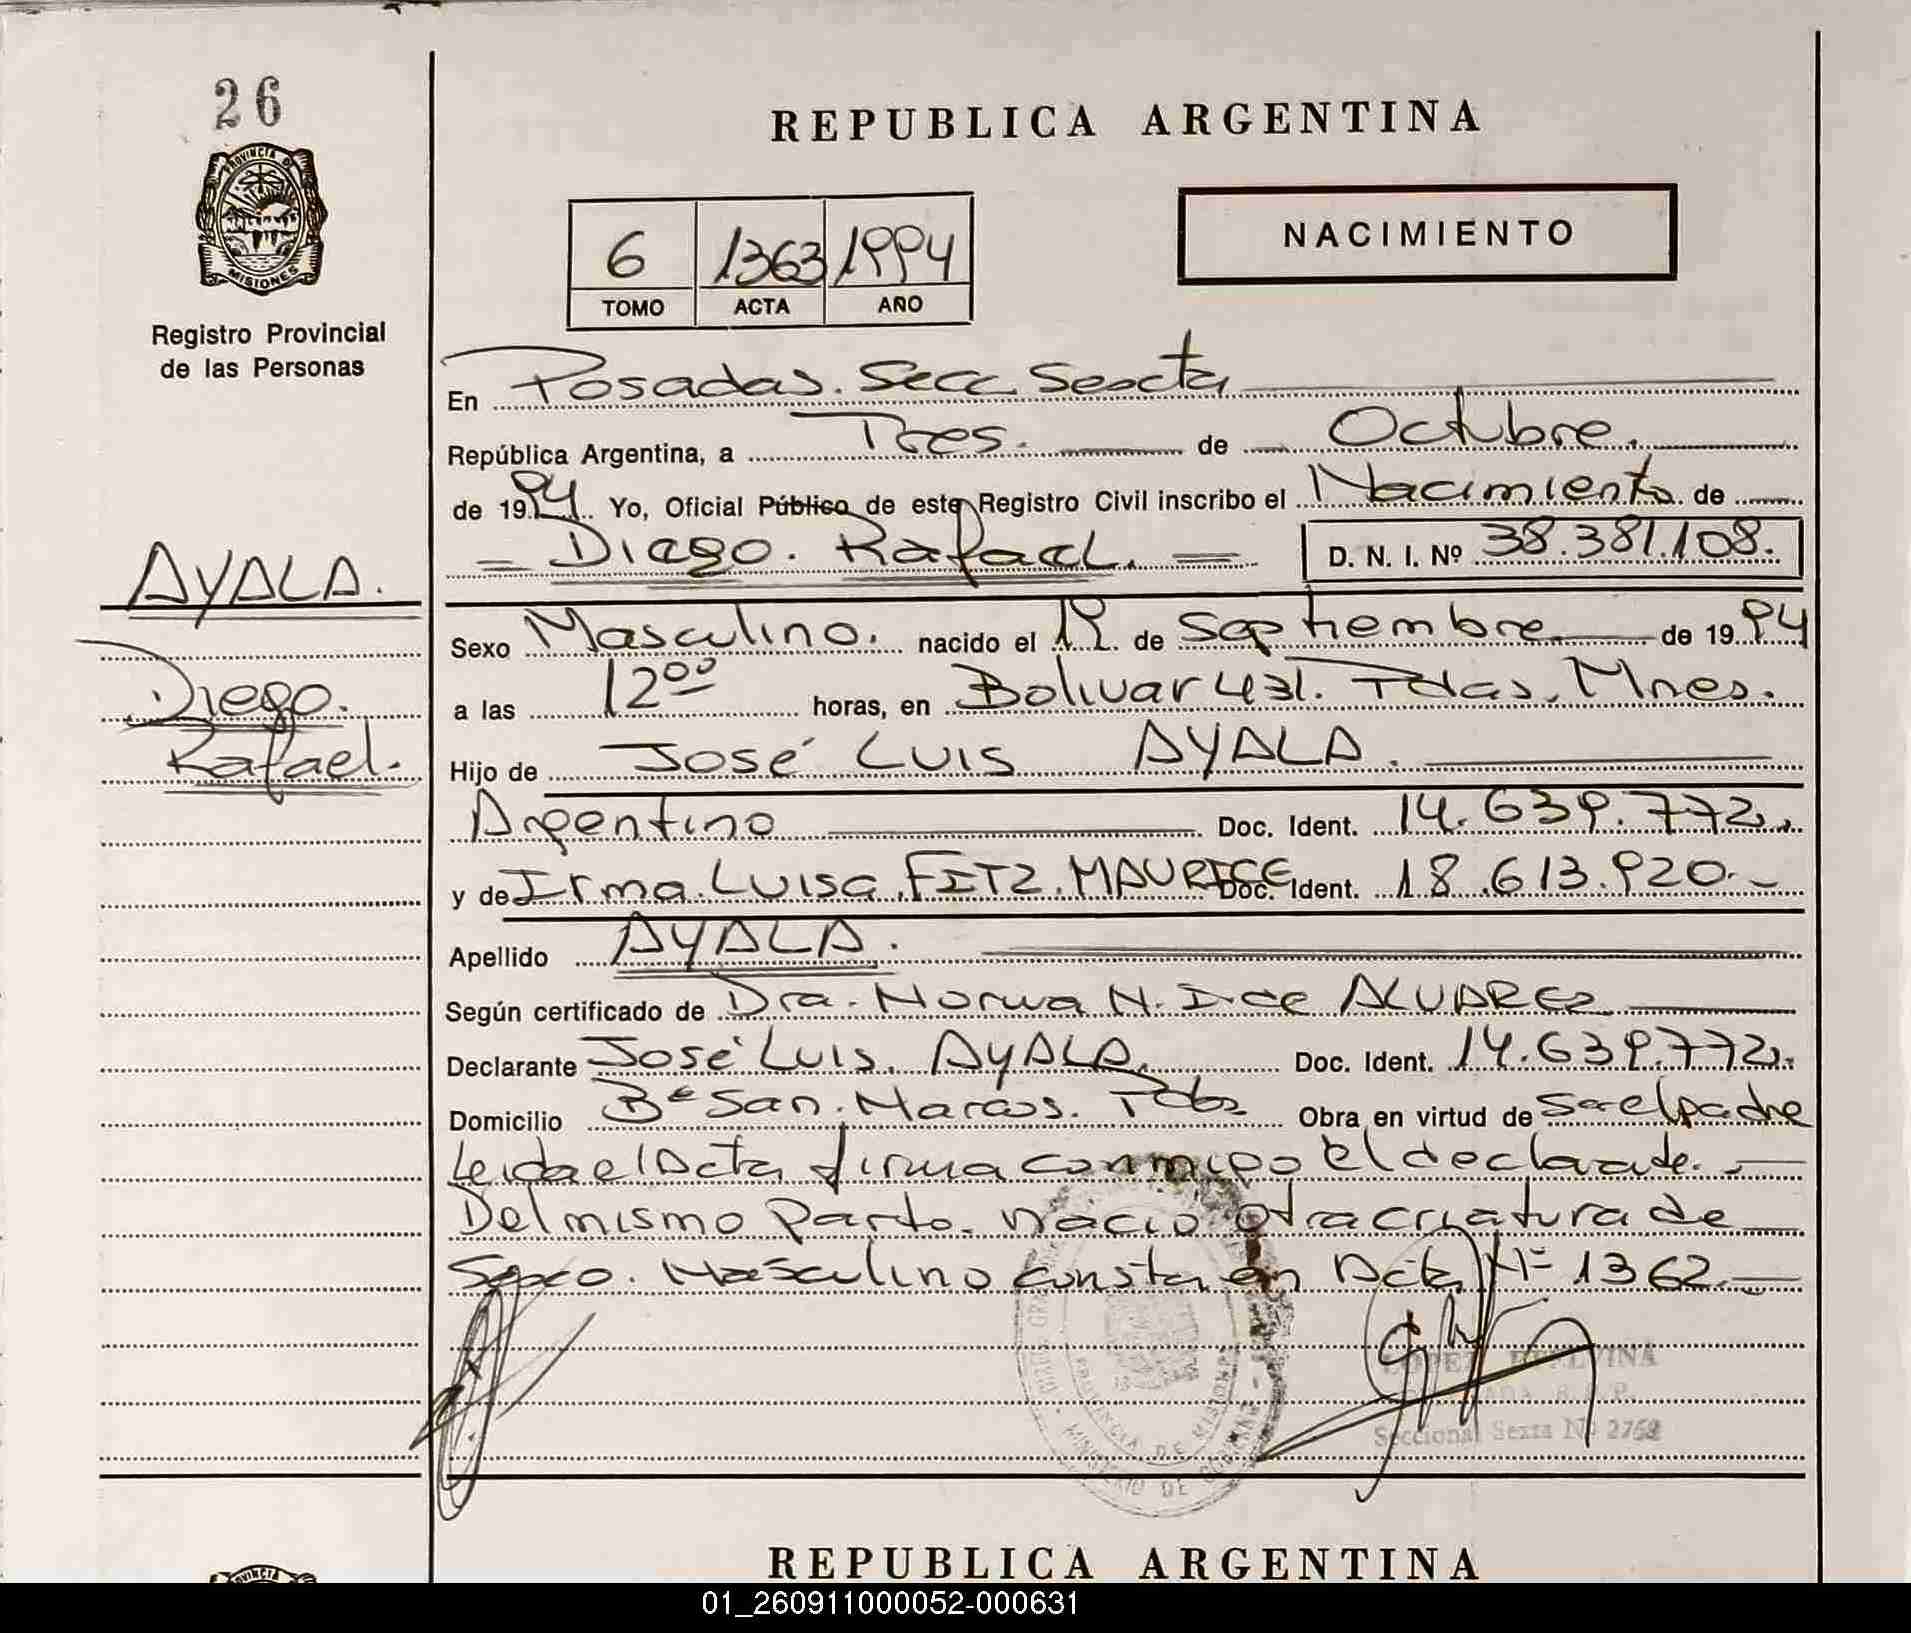 26
REPUBLICA ARGENTINA
PROVINCIA DE
MISIONES
Registro Provincial
de las Personas
6 1363 1994
TOMO ACTA AÑO
NACIMIENTO
En Posadas. Secc Sexta
República Argentina, a Tres. de Octubre.
de 1994. Yo, Oficial Público de este Registro Civil inscribo el Nacimiento de
Diego. Rafael. D. N. I. Nº 38.381.108.
AYALA.
Diego.
Rafael.
Sexo Masculino. nacido el 19 de Septiembre de 1994
a las 12⁰⁰ horas, en Bolivar 431. Pdas. Mnes.
Hijo de José Luis AYALA.
Argentino Doc. Ident. 14.639.772.
y de Irma Luisa FITZ MAURICE Doc. Ident. 18.613.920.
Apellido AYALA.
Según certificado de Dra. Norma N. I. de ALVAREZ
Declarante José Luis. AYALA. Doc. Ident. 14.639.772.
Domicilio Bº San. Marcos. Pdas Obra en virtud de Ser el padre
Leida el Acta firma conmigo el declarante.
Del mismo Parto. nacio otra criatura de
Sexo. Masculino consta en Acta Nº 1362.
PROVINCIA DE MISIONES
MINISTERIO DE GOBIERNO
LOPEZ
Seccional Sexta Nº 2762
REPUBLICA ARGENTINA
01_260911000052-000631